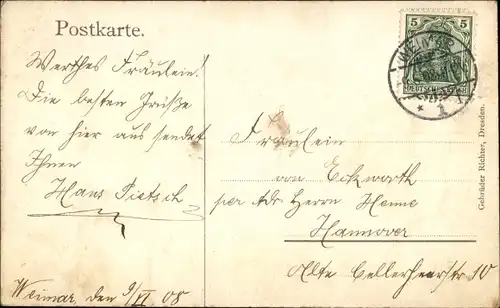 Postkarte.
Werthes Fräulein!
Die besten Grüße
von hier aus sendet
Ihnen
Hans Pietsch
Weimar, den 9/VI 08
5 5
DEUTSCHES REICH
1
Fräulein
von Eckwarth
per Adr. Herrn Henne
Hannover
Alte Cellerheerstr 10
Gebrüder Richter, Dresden.